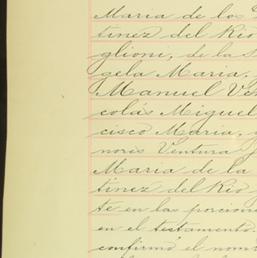 Maria de los
tinez del Rio
glioni, de la
gela Maria.
Manuel Ven
colás Miguel
cisco Maria, y
noris Ventura
Maria de la
tinez del Rio
te en las porcione
en el testamento.
confirmó el nom